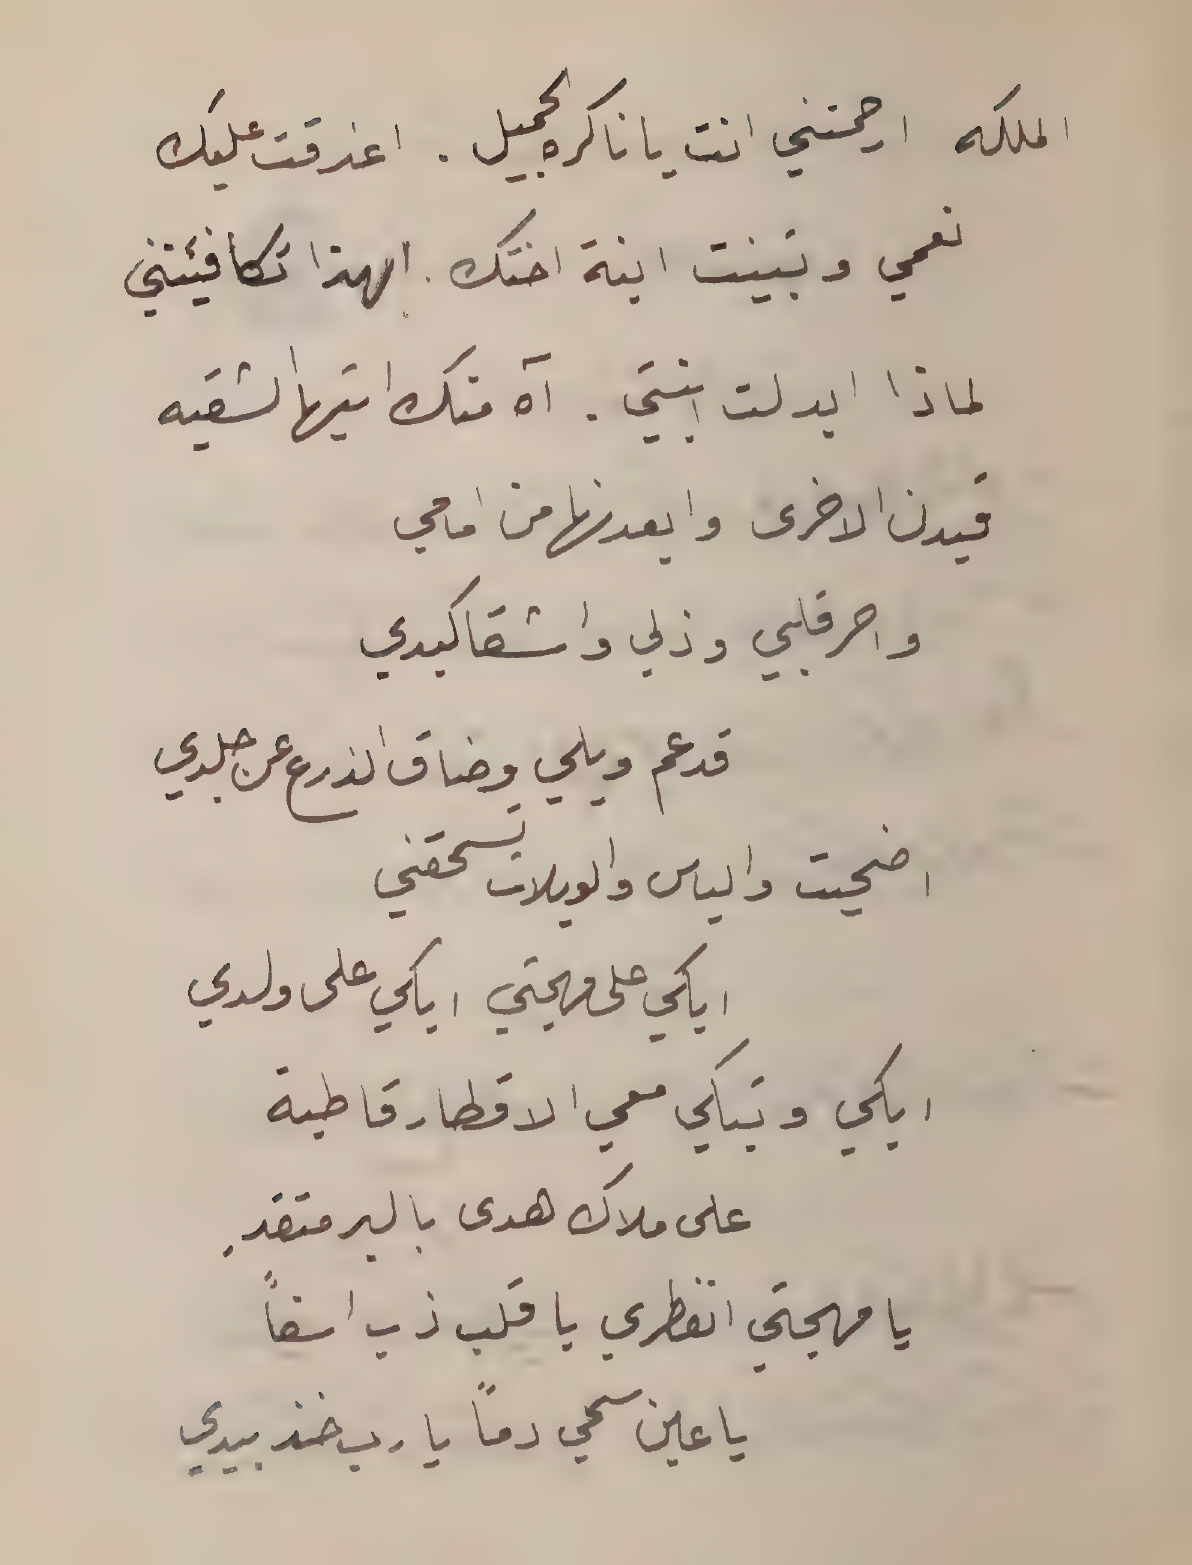 الملكه ارحمتني انت يا ناكره الجميل . اغدقت عليك
نعمي وتبينت ابنة اختك . ابهذا تكافيئنني
لماذا ابدلت ابنتي . آه منك ايتها الشقيه
قيدن الاخرى وابعدنها من امامي
واحر قلبي وذلي واشقا كبدي
قد عم ويلي وضاق الذرع عن جلدي
اضحيت والياس والويلات تسحقني
ابكي على مهجتي ابكي على ولدي
ابكي وتبكي معي الاقطار قاطبة
على ملاك هدى بالبر متقد
يا مهجتي انفطري يا قلب ذب اسفاً
يا عين سحي دماً يا رب خذ بيدي